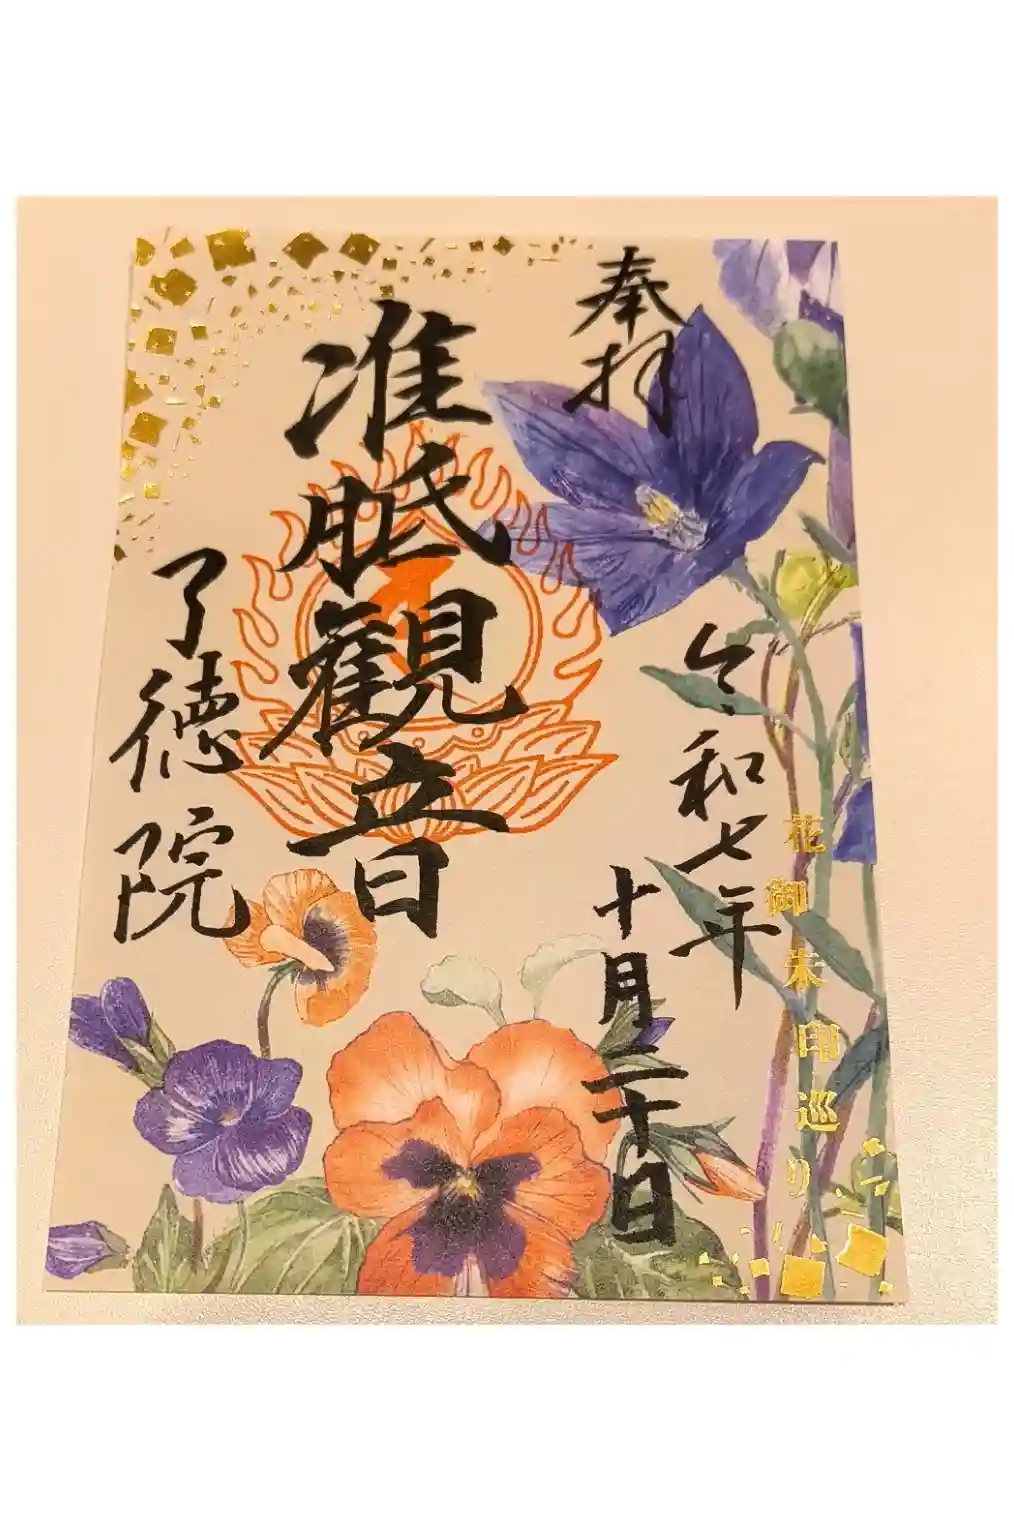 奉拝
准胝觀音
了徳院
令和七年
十月二十日
花御朱印巡り